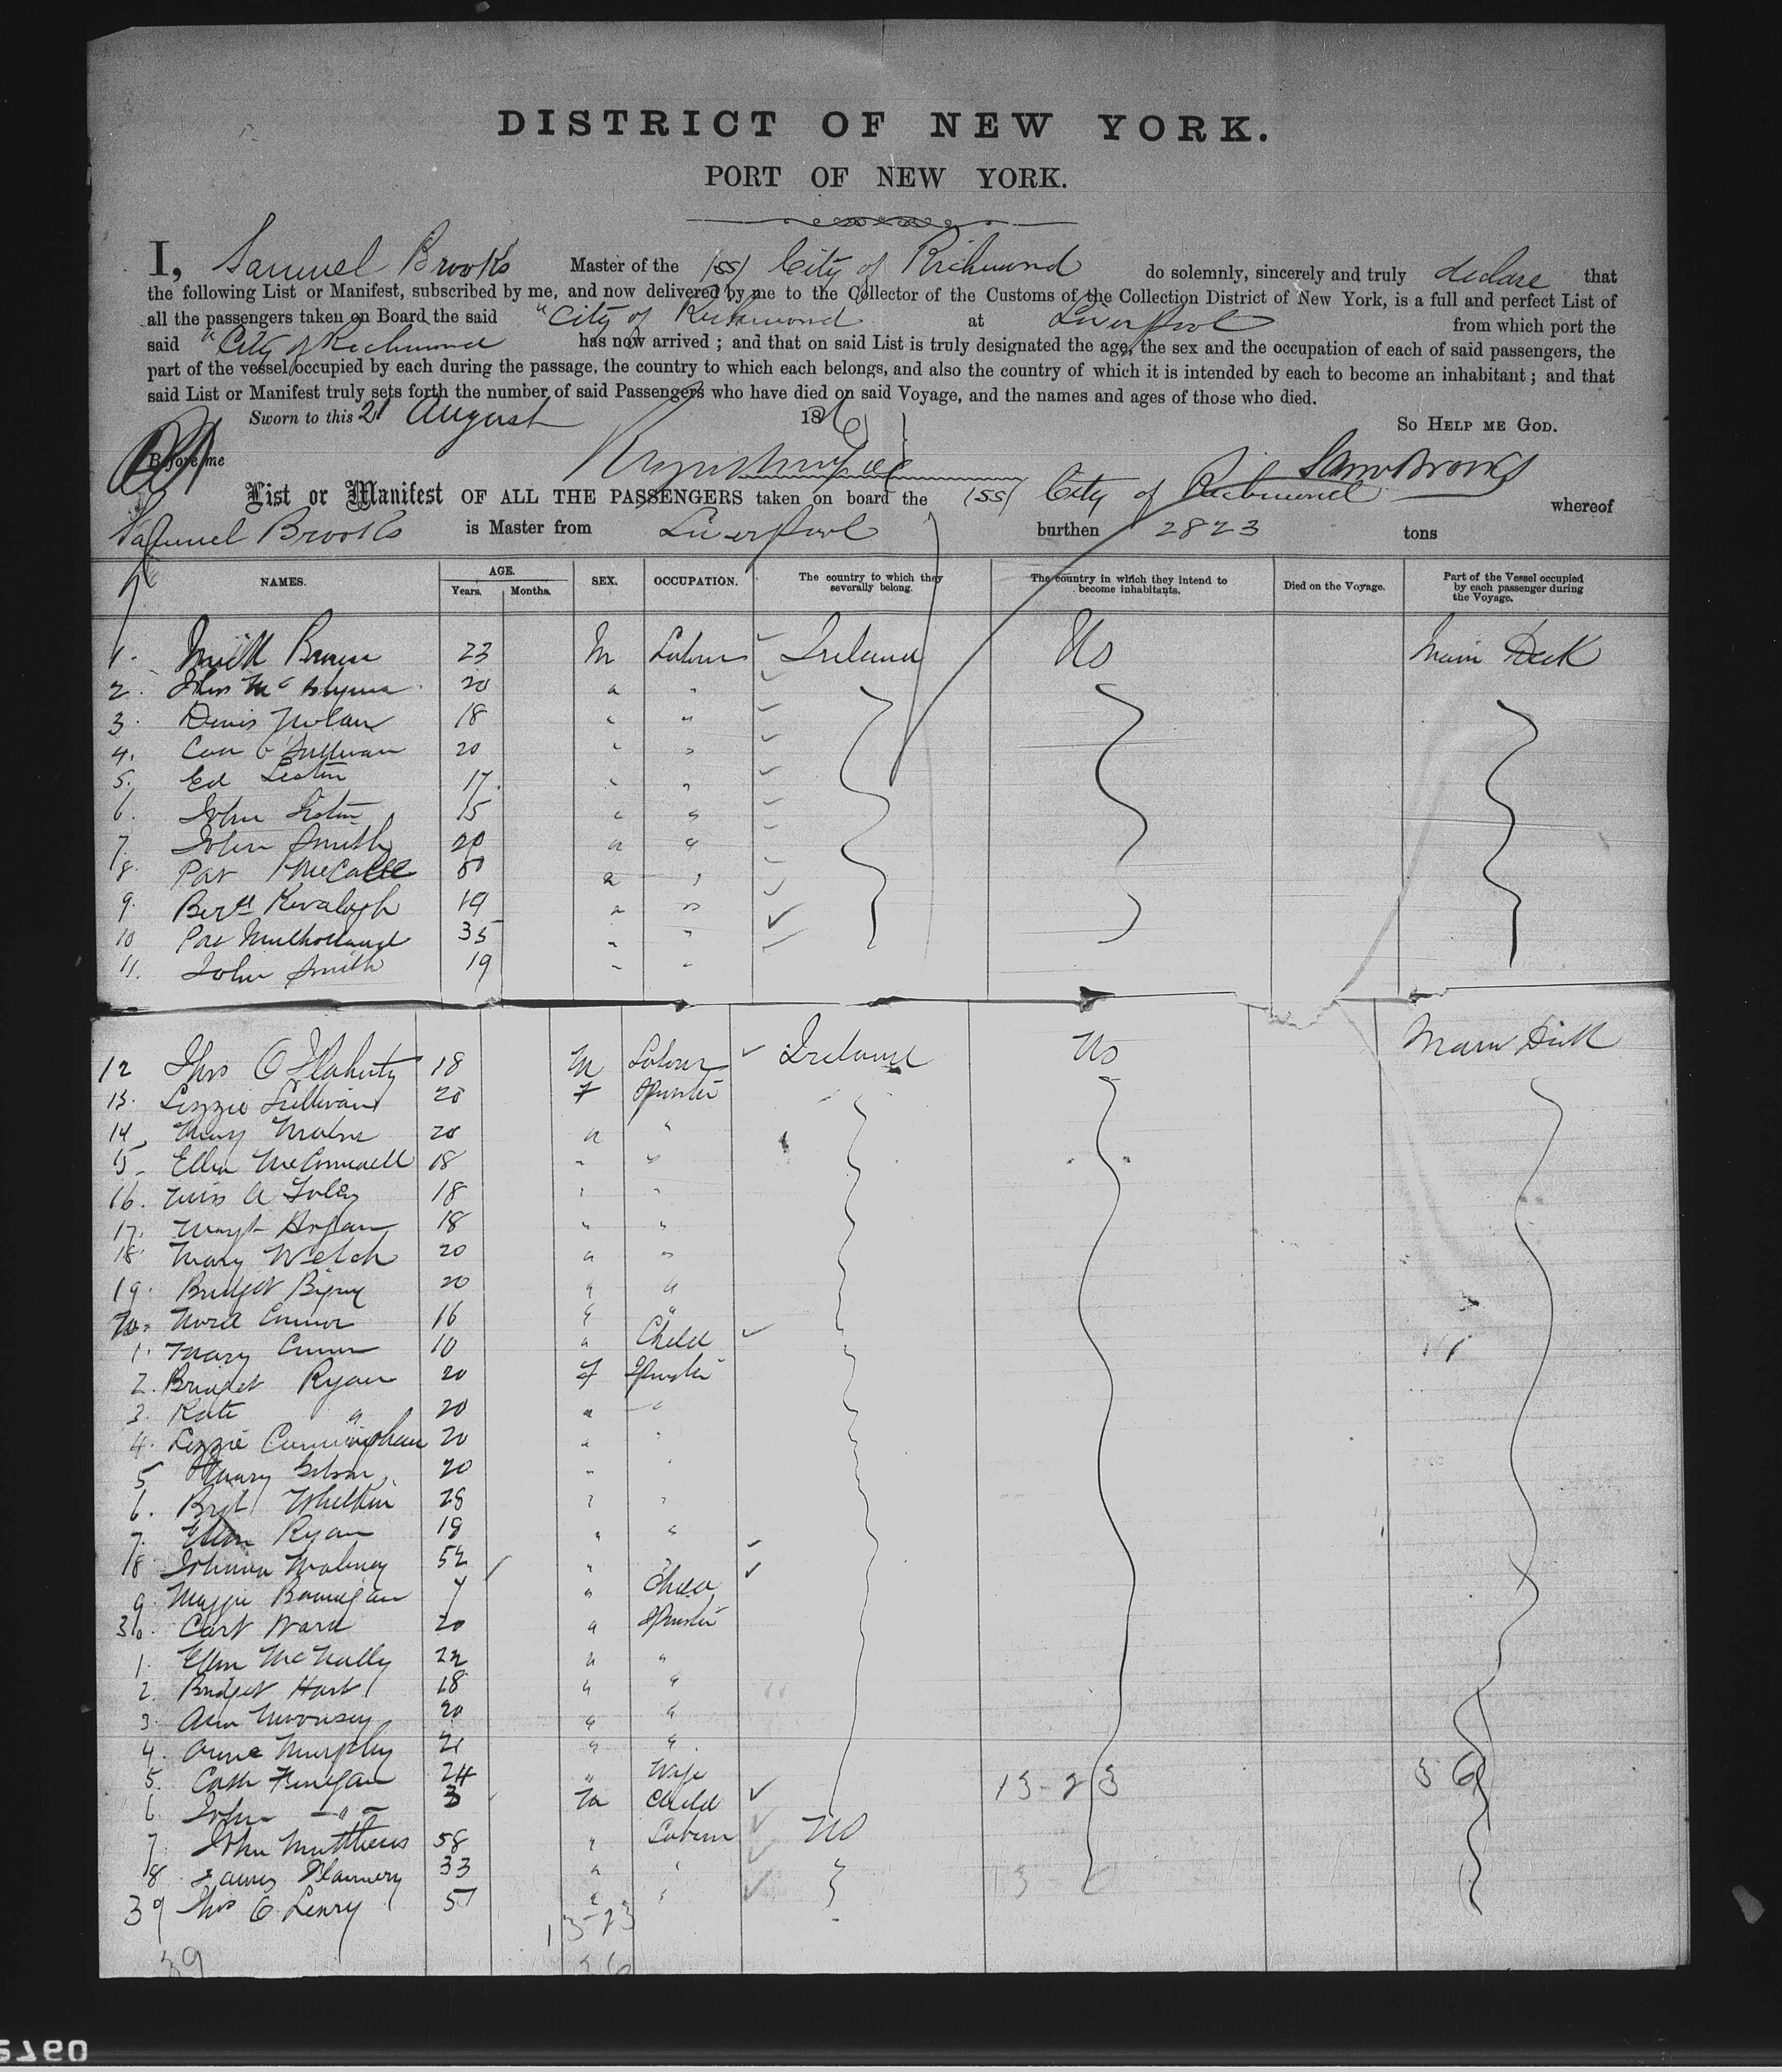 DISTRICT OF NEW YORK.
PORT OF NEW YORK.
I, Samuel Brooks Master of the (SS) City of Richmond do solemnly, sincerely and truly declare that
the following List or Manifest, subscribed by me, and now delivered by me to the Collector of the Customs of the Collection District of New York, is a full and perfect List of
all the passengers taken on Board the said "City of Richmond at Liverpool from which port the
said "City of Richmond has now arrived ; and that on said List is truly designated the age, the sex and the occupation of each of said passengers, the
part of the vessel occupied by each during the passage, the country to which each belongs, and also the country of which it is intended by each to become an inhabitant ; and that
said List or Manifest truly sets forth the number of said Passengers who have died on said Voyage, and the names and ages of those who died.
Sworn to this 21 August 1876 So HELP ME GOD.
Before me Saml Brooks
List or Manifest OF ALL THE PASSENGERS taken on board the (SS) City of Richmond whereof
Samuel Brooks is Master from Liverpool burthen 2823 tons
NAMES. AGE. Years. Months. SEX. OCCUPATION. The country to which they severally belong. The country in which they intend to become inhabitants. Died on the Voyage. Part of the Vessel occupied by each passenger during the Voyage.
1. Brown 23 M Labour Ireland US Main Deck
2. Thos Mc 20 " "
3. Denis Nolan 18 " "
4. Con O'Sullivan 20 " "
5. Ed 17 " "
6. John 15 " "
7. John Smith 20 " "
8. Pat McCall " "
9. Kevalagh 19 " "
10 Pat Mulholland 35 " "
11. John Smith 19 " "
12 Thos O Flaherty 18 M Labour Ireland US Main Deck
13. Lizzie Sullivan 20 F Spinster
14. Mary Malone 20 " "
15. Ellen McConnell 18 " "
16. Miss A Foley 18 " "
17. Margt Hogan 18 " "
18. Mary Welch 20 " "
19. Bridget 20 " "
20. Nora Connor 16 " "
1. Mary Connor 10 " Child
2. Bridget Ryan 20 F Spinster
3. Kate " 20 " "
4. Lizzie Cunningham 20 " "
5 Mary 20 " "
6. Bgt 28 " "
7. Ellen Ryan 19 " "
18 Johanna Maloney 52 "
9. Maggie Bannigan " Child
30. Cath Ward 20 " Spinster
1. Ellen McNally 22 " "
2. Bridget Hart 18 " "
3. Ann Morrisey 20 " "
4. Annie Murphy 21 " "
5. Cath Finegan 24 " Wife 13-23 36
6. John - " - 3 M Child
7. John Matthews 58 " Labour US
8 James Flannery 33 " "
39 Thos O Leary 51 " "
13-23
39 36
2760